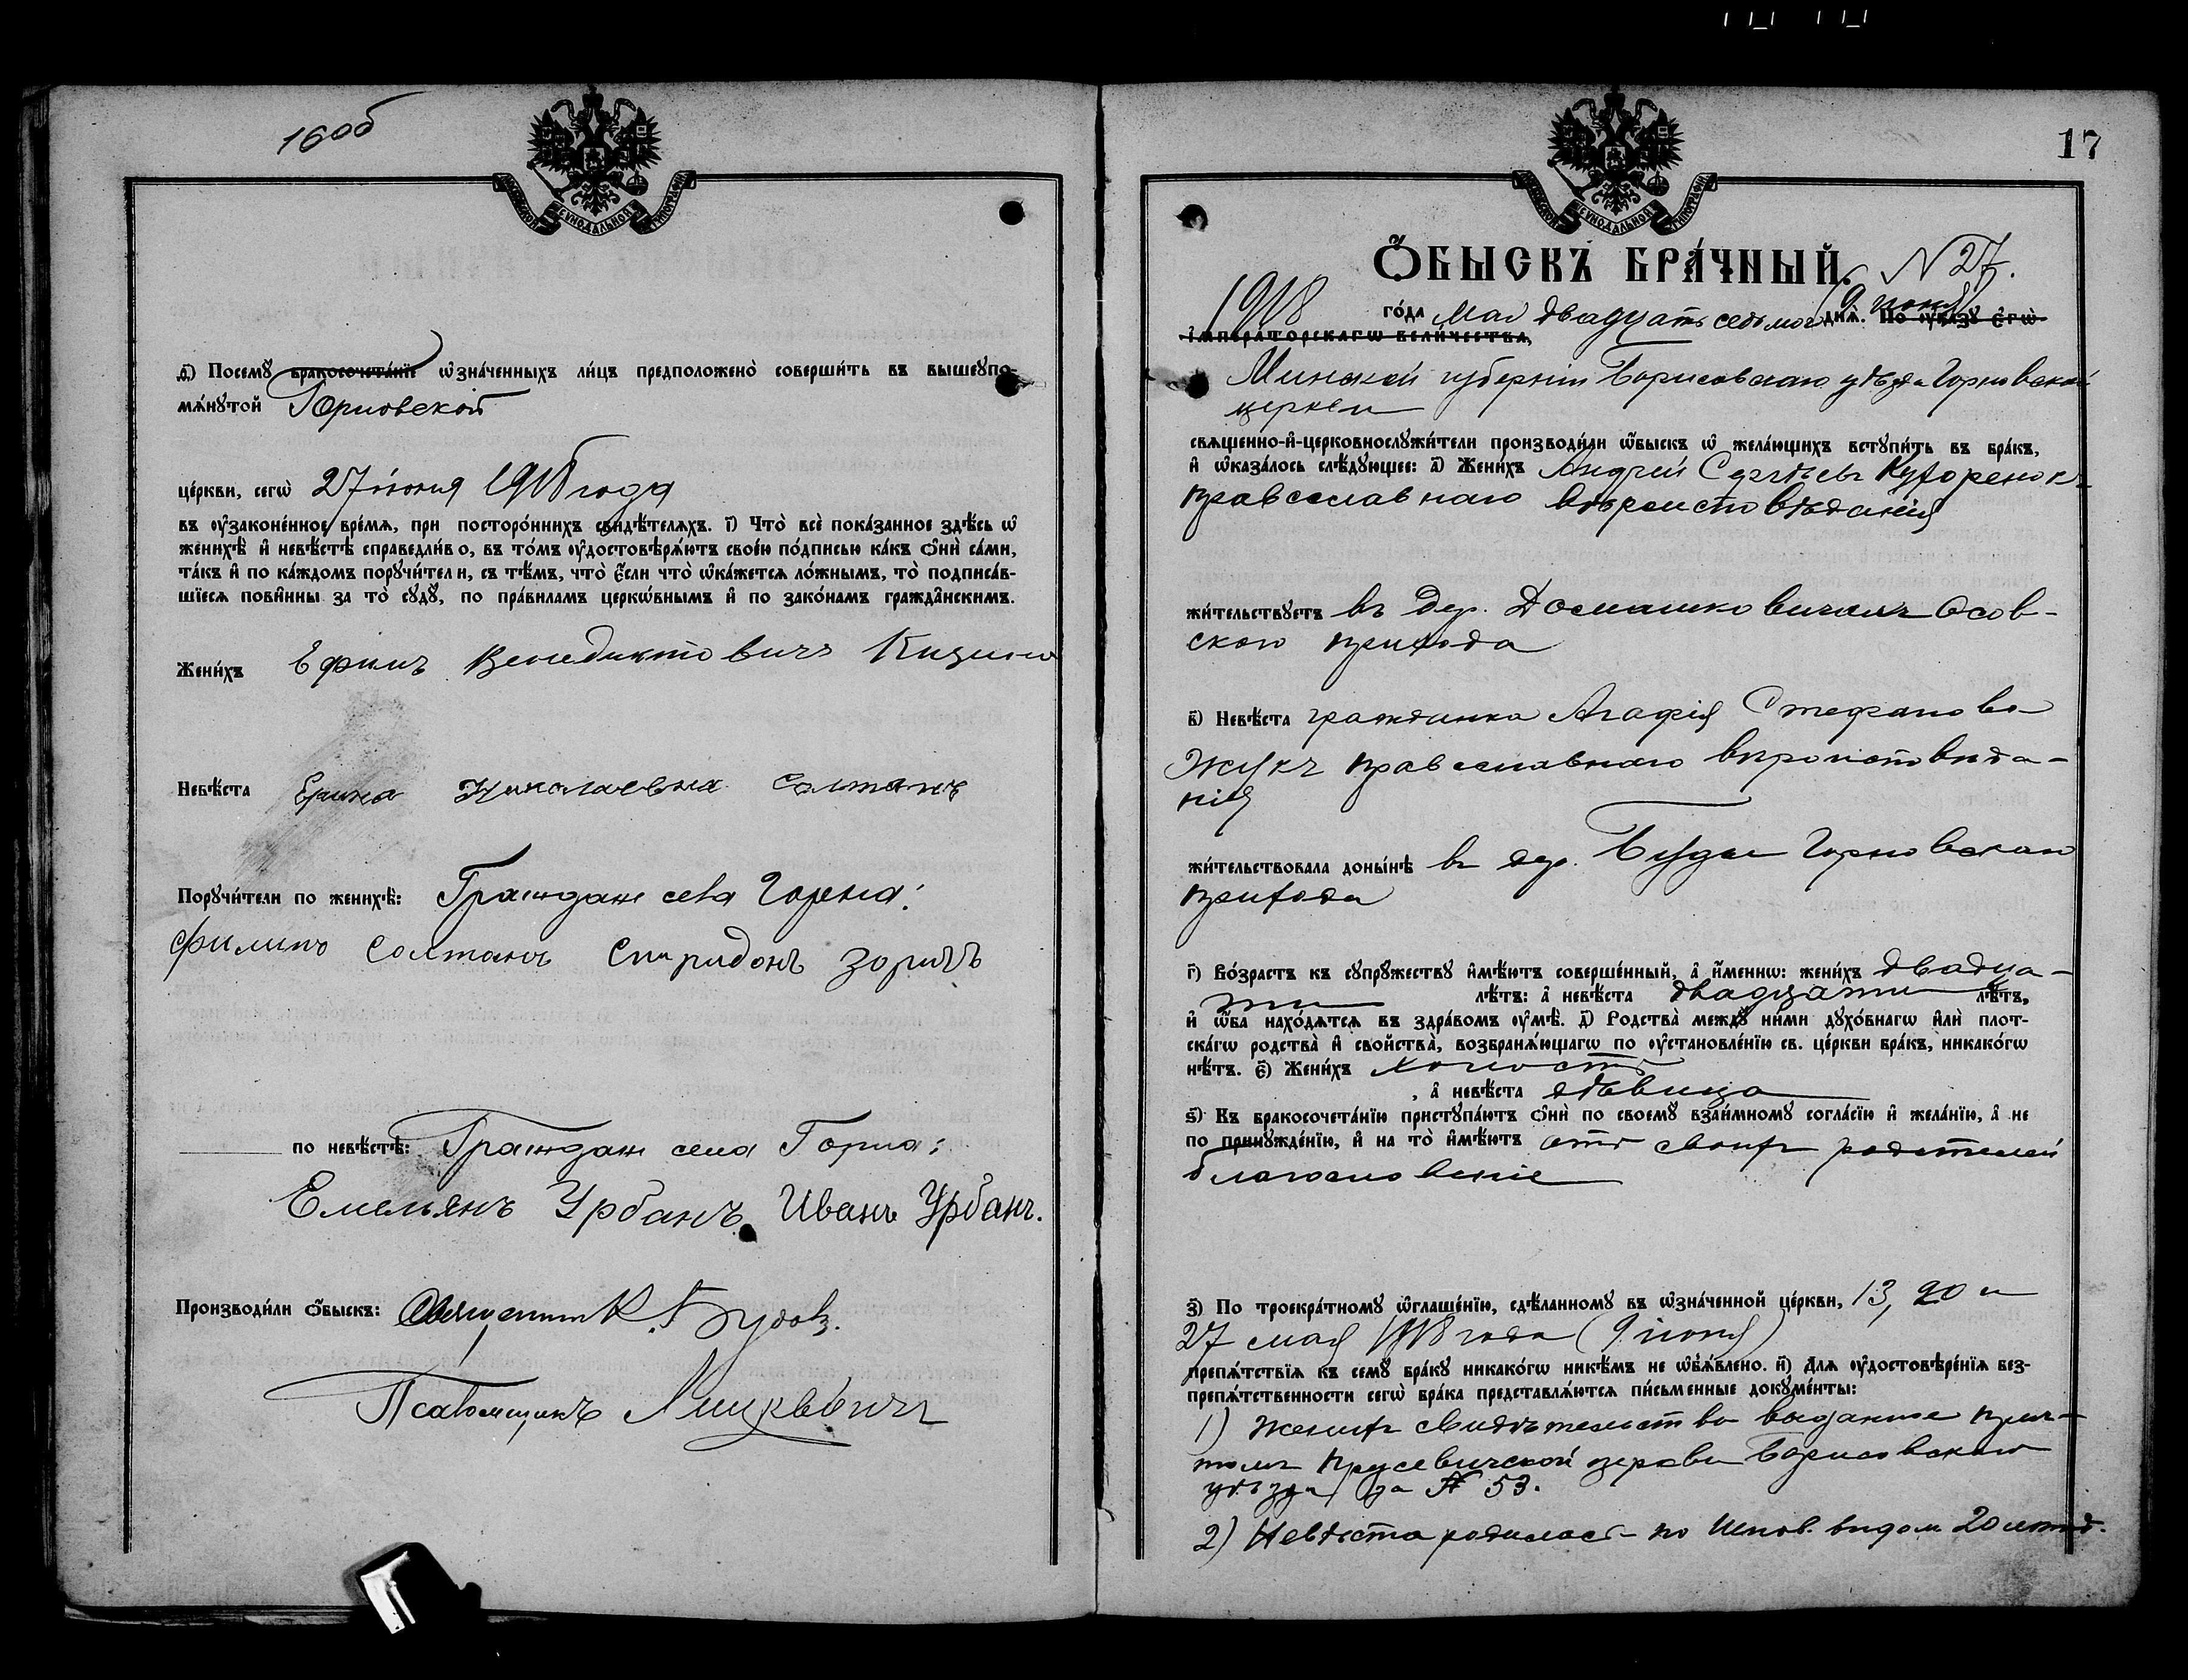 160б
СѴНОДАЛЬНОЙ
ТИПОГРАФІИ
д҃) Посемꙋ̀ бракосочета́нїе ѡ҆зна́ченныхъ ли́цъ предположено̀ соверши́ть въ вышеꙋпо-
мѧ́нꙋтой Горновской
це́ркви, сегѡ̀ 27 іюня 1918 года
въ ᲂу҆зако́ненное вре́мѧ, при посторо́ннихъ свидѣ́телѧхъ. і҃) Что̀ всѐ пока́занное здѣ́сь ѡ҆
женихѣ̀ и҆ невѣ́стѣ справедли́во, въ то́мъ ᲂу҆достовѣрѧ́ютъ свое́ю по́дписью ка́къ ѻ҆нѝ са́ми,
та́къ и҆ по ка́ждомъ порꙋчи́тели, съ тѣ́мъ, что̀ є҆́сли что̀ ѡ҆ка́жетсѧ ло́жнымъ, то̀ подписа́в-
шїесѧ пови́нны за то̀ сꙋдꙋ̀, по пра́виламъ церкѡ́внымъ и҆ по зако́намъ гражда́нскимъ.
Жени́хъ Ефимъ Венедиктовичъ
Невѣ́ста Николаевна Солтанъ
Порꙋчи́тели по женихѣ̀: Граждане села Горна:
Филипъ Солтанъ Спиридонъ Зоричъ
по невѣ́стѣ: Граждане села Горна:
Емельянъ Урбанъ Иванъ Урбанъ.
Производи́ли ѻ҆́быскъ: Священникъ
Псаломщикъ Мицкевичъ
17
СѴНОДАЛЬНОЙ
ТИПОГРАФІИ
Ѻ҆́БЫСКЪ БРА́ЧНЫЙ. N 27.
1918 го́да мая двадцать седьмого (9 іюня) днѧ̀. По ᲂу҆ка́зꙋ є҆гѡ̀
и҆мпера́торскагѡ вели́чества,
Минской губерніи Борисовскаго уѣзда Горновской
церкви
свѧще́нно-и҆-церковнослꙋжи́тели производи́ли ѻ҆́быскъ ѡ҆ жела́ющихъ встꙋпи́ть въ бра́къ,
и҆ ѡ҆каза́лось слѣ́дꙋющее: а҃) Жени́хъ Андрей Сергѣевъ Хуторенокъ
православнаго вѣроисповѣданія
жи́тельствꙋетъ въ дер. Домашковичахъ Осов-
ского прихода
в҃) Невѣ́ста гражданка Агафія Стефанова
Жукъ православнаго вѣроисповѣда-
нія
жи́тельствовала доны́нѣ въ дер. Буда Горновскаго
прихода
г҃) Во́зрастъ къ сꙋпрꙋ́жествꙋ и҆мѣ́ютъ соверше́нный, а҆ и҆́меннѡ: жени́хъ двадца-
ти лѣ́тъ: а҆ невѣ́ста двадцати лѣ́тъ,
и҆ ѻ҆́ба нахо́дѧтсѧ въ здра́вомъ ᲂу҆мѣ̀. д҃) Родства̀ междꙋ̀ ни́ми дꙋхо́внагѡ и҆лѝ плот-
ска́гѡ родства̀ и҆ сво́йства̀, возбранѧ́ющагѡ по ᲂу҆становле́нїю св. це́ркви бра́къ, никако́гѡ
нѣ́тъ. є҃) Жени́хъ холостъ
, а҆ невѣ́ста дѣвица
ѕ҃) Къ бракосочета́нїю пристꙋпа́ютъ ѻ҆нѝ по своемꙋ̀ взаи́мномꙋ согла́сїю и҆ жела́нїю, а҆ не
по принꙋжде́нїю, и҆ на то̀ и҆мѣ́ютъ отъ своихъ родителей
благословеніе
з҃) По троекра́тномꙋ ѡ҆глаше́нїю, сдѣ́ланномꙋ въ ѡ҆зна́ченной це́ркви, 13, 20 и
27 мая 1918 года (9 іюня)
препѧ́тствїѧ къ семꙋ̀ бра́кꙋ никако́гѡ никѣ́мъ не ѡ҆б̾ѧ́влено. и҃) Длѧ ᲂу҆достовѣре́нїѧ без-
препѧ́тственности сегѡ̀ бра́ка представлѧ́ютсѧ пи́сьменные докꙋме́нты:
1) Жениха свидѣтельство выданное прич-
томъ Прусевичской церкви Борисовскаго
уѣзда за № 53.
2) Невѣста родилась по 20